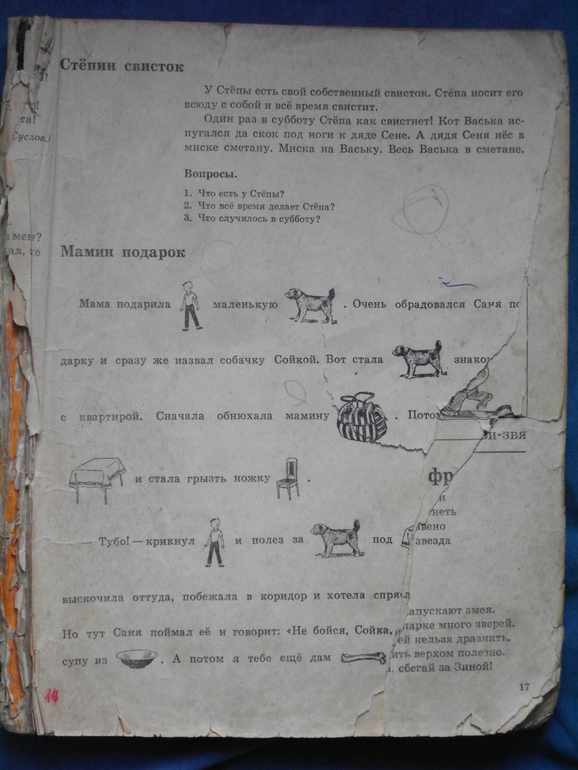 Стёпин свисток
У Стёпы есть свой собственный свисток. Стёпа носит его
всюду с собой и всё время свистит.
Один раз в субботу Стёпа как свистнет! Кот Васька ис-
пугался да скок под ноги к дяде Сене. А дядя Сеня нёс в
миске сметану. Миска на Ваську. Весь Васька в сметане.
Вопросы.
1. Что есть у Стёпы?
2. Что всё время делает Стёпа?
3. Что случилось в субботу?
Мамин подарок
Мама подарила маленькую . Очень обрадовался Саня по
дарку и сразу же назвал собачку Сойкой. Вот стала знако
с квартирой. Сначала обнюхала мамину . Потом
зи-звя
и стала грызть ножку .
фр
и
неть
— Тубо! — крикнул и полез за под
звезда
выскочила оттуда, побежала в коридор и хотела спря
апускают змея.
Но тут Саня поймал её и говорит: «Не бойся, Сойка,
парке много зверей.
ей нельзя дразнить.
супу из . А потом я тебе ещё дам
ить верхом полезно.
сбегай за Зиной!
17